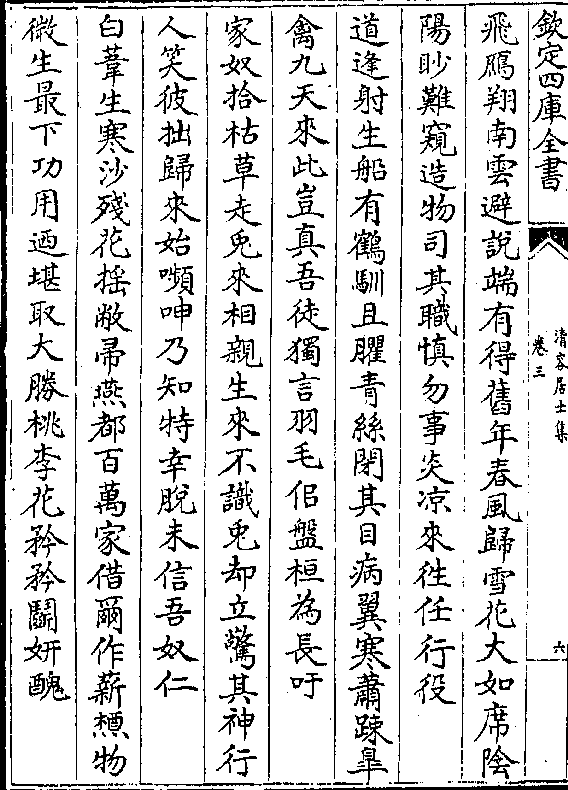 欽定四庫全書
清容居士集
卷三
六
飛鴈翔南雲避說端有得舊年春風歸雪花大如席陰
陽眇難窺造物司其職慎勿事炎凉來徃任行役
道逢射生船有鶴馴且臞青絲閉其目病翼寒蕭踈臯
禽九天來此豈真吾徒獨言羽毛侣盤桓為長吁
家奴拾枯草走兎來相親生來不識兎却立驚其神行
人笑彼拙歸來始嚬呻乃知特幸脫未信吾奴仁
白葦生寒沙殘花揺敝帚燕都百萬家借爾作薪槱物
微生最下功用廼堪取大勝桃李花矜矜鬭妍醜